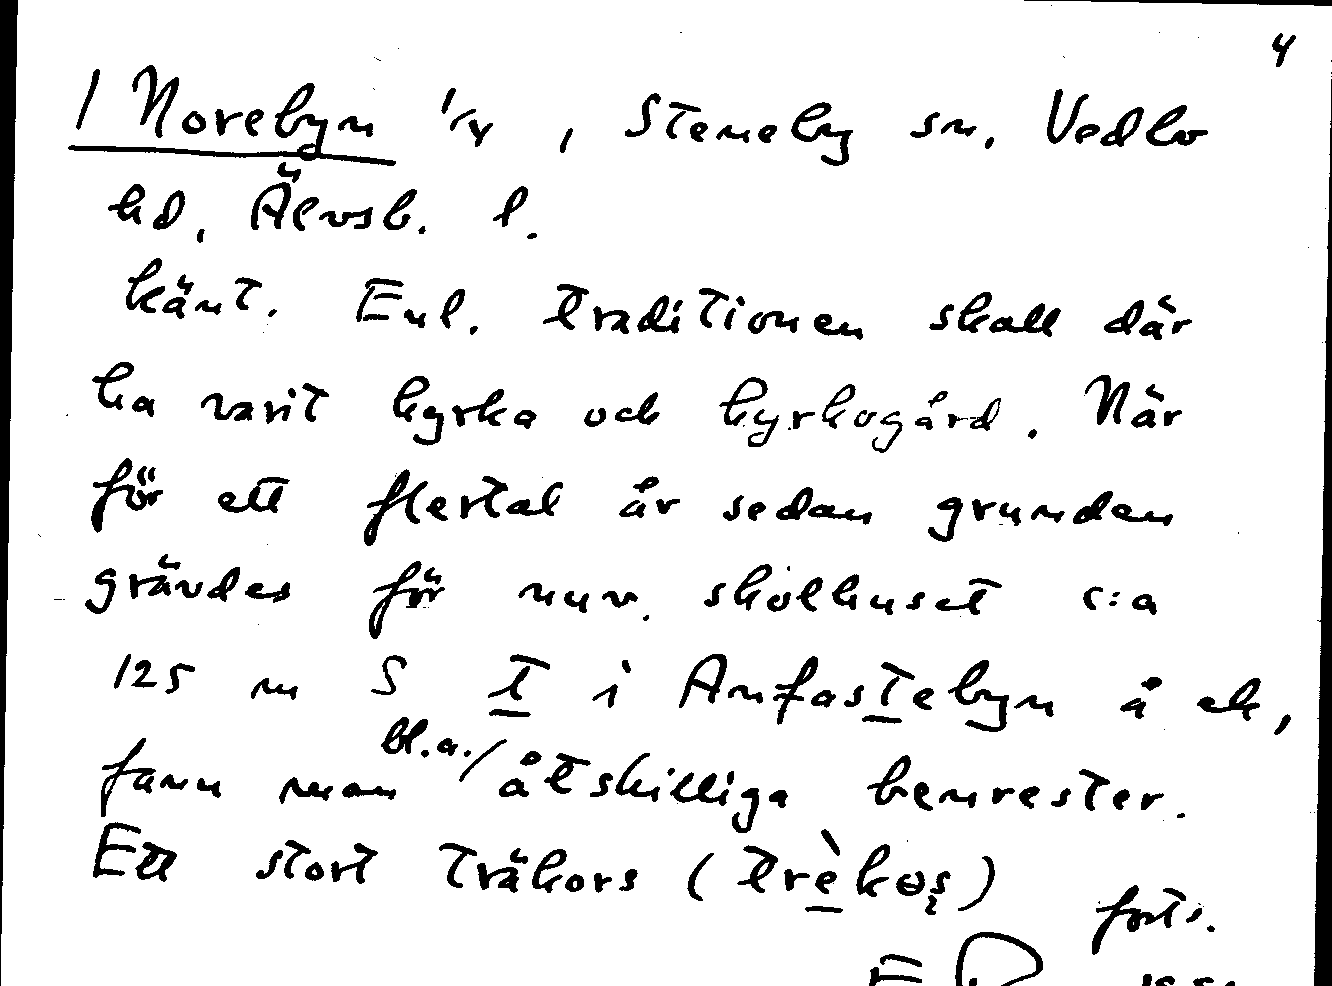 4
/ Norebyn 1/4, Steneby sn, Vedbo
hd, Älvsb. l.
känt. Enl. traditionen skall där
ha varit kyrka och kyrkogård. När
för ett flertal år sedan grunden
grävdes för nuv. skolhuset c:a
125 m S t i Anfastebyn å ek,
fann man bl.a./ åtskilliga benrester.
Ett stort träkors (trèkɵş)
forts.